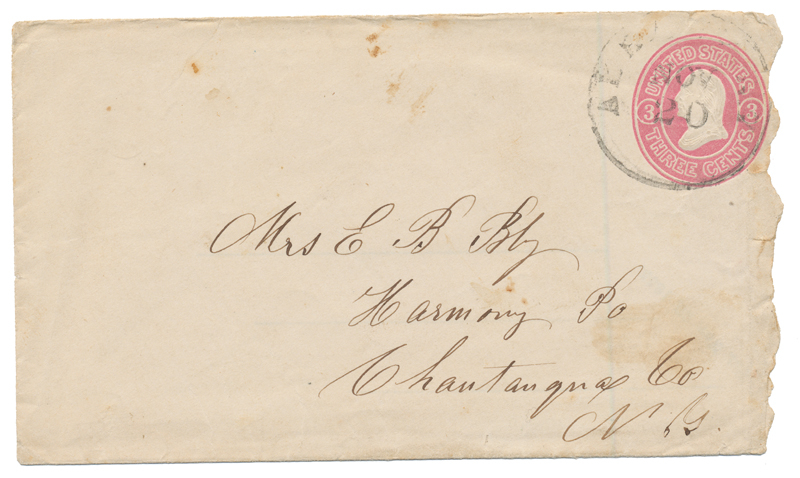 UNITED STATES
3 3
THREE CENTS
NOV
20
Mrs E B Bly
Harmony Po
Chautauqua Co
N.Y.